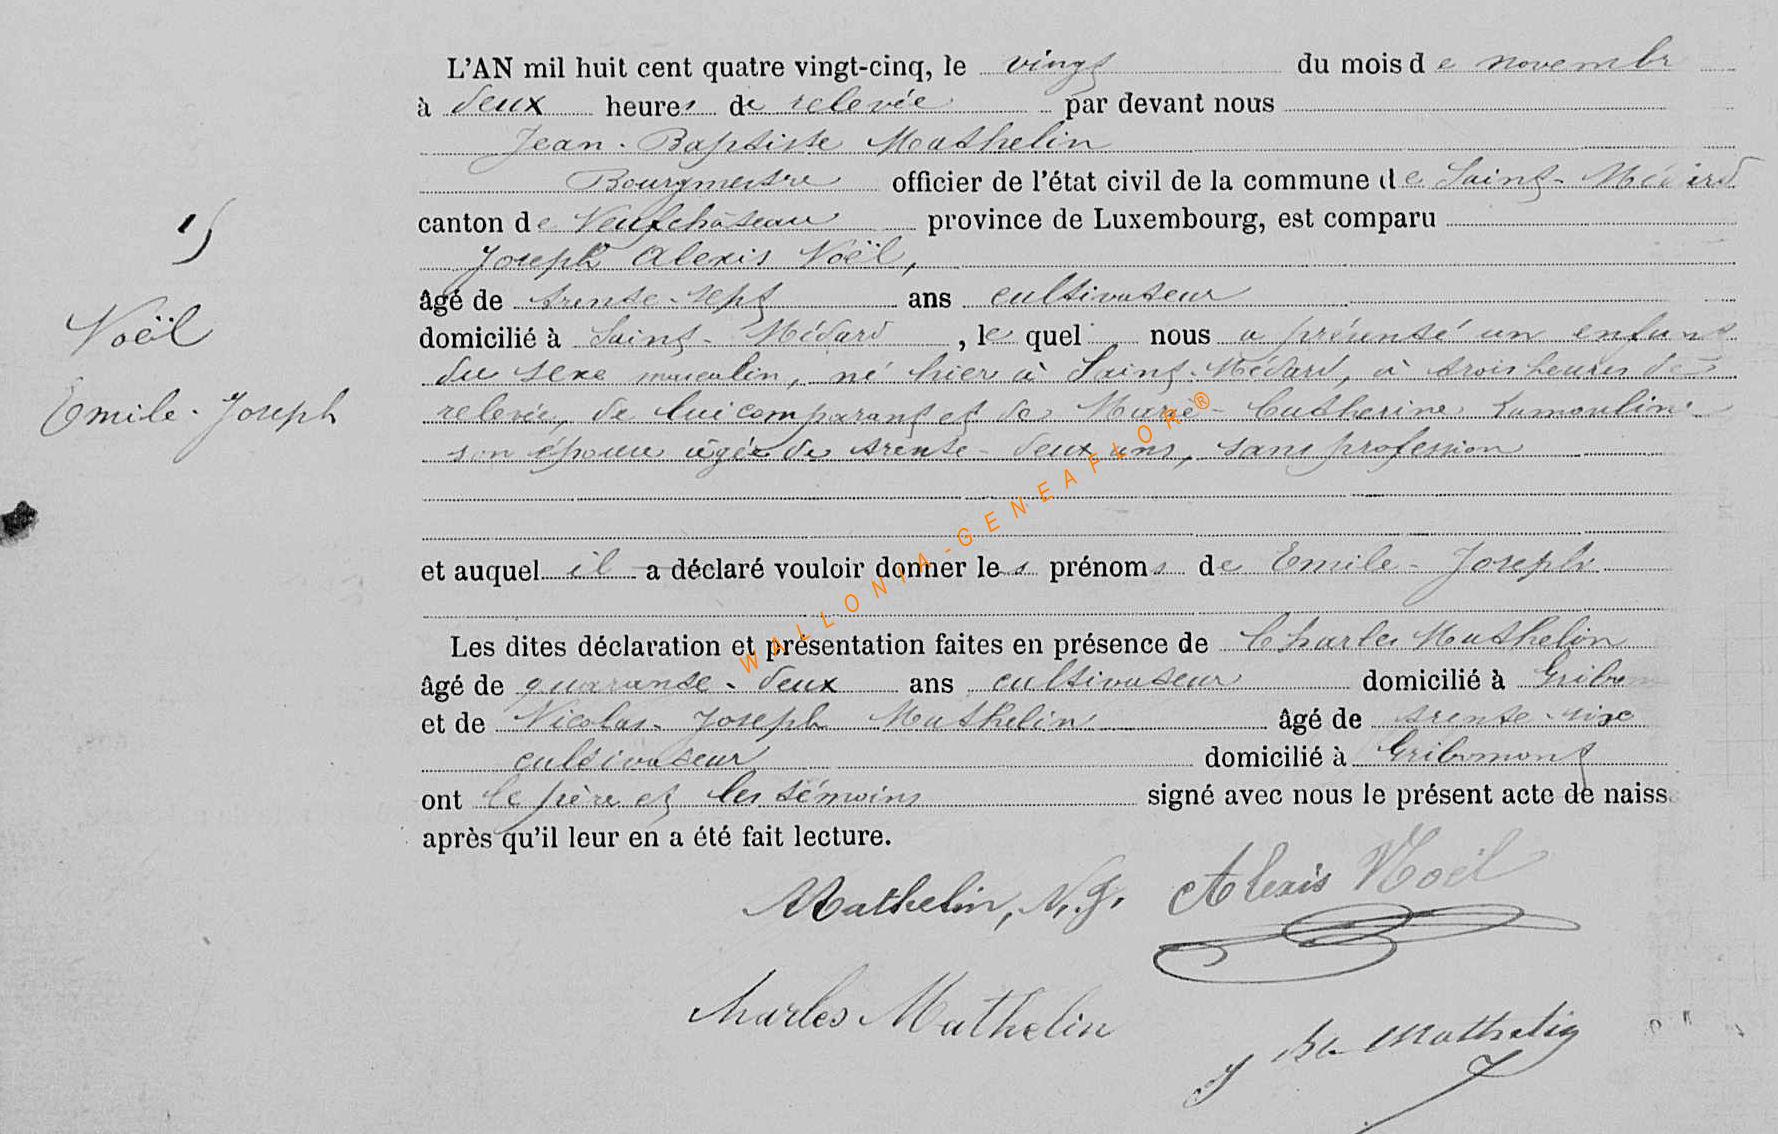 L'AN mil huit cent quatre vingt-cinq, le vingt du mois de novembr
à deux heures de relevée par devant nous
Jean-Baptiste Mathelin
Bourgmestre officier de l'état civil de la commune de Saint-Médard
canton de Neufchâteau province de Luxembourg, est comparu
Joseph Alexis Noël,
âgé de trente-sept ans cultivateur
domicilié à Saint-Médard, lequel nous a présenté un enfant
du sexe masculin, né hier à Saint-Médard, à trois heures de
relevée, de lui comparant et de Marie-Catherine Lamouline
son épouse âgée de trente-deux ans, sans profession
et auquel il a déclaré vouloir donner les prénoms de Emile-Joseph
Les dites déclaration et présentation faites en présence de Charles Mathelin
âgé de quarante-deux ans cultivateur domicilié à Gribom
et de Nicolas-Joseph Mathelin âgé de trente-six
cultivateur domicilié à Gribomont
ont le père et les témoins signé avec nous le présent acte de naiss
après qu'il leur en a été fait lecture.
Noël
Emile-Joseph
Mathelin, N.J. Alexis Noël
Charles Mathelin
J Bte Mathelin
WALLONIA-GENEAFLOR®